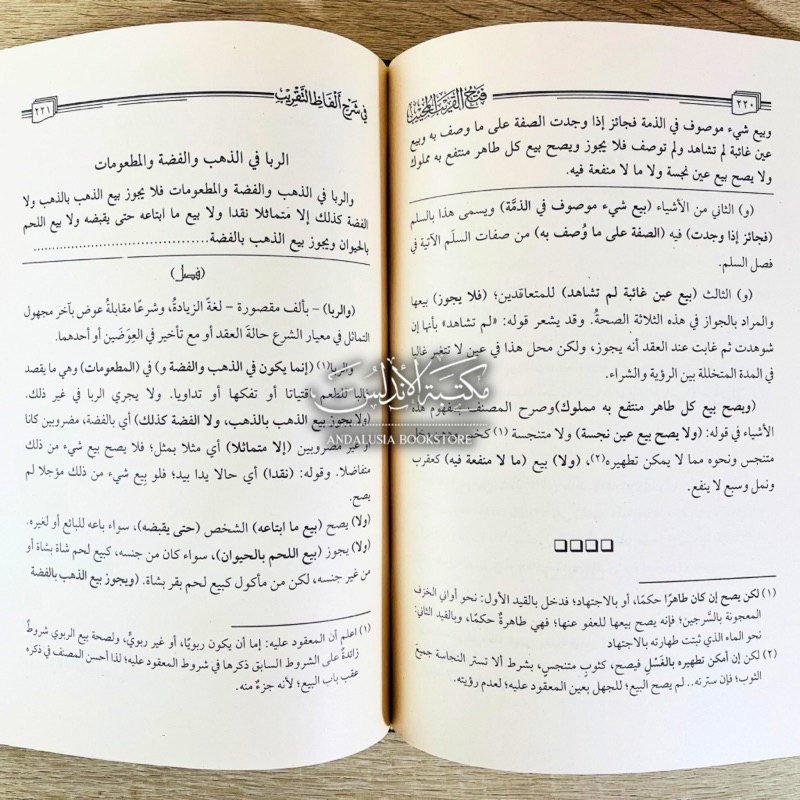 ٢٢٠
فتح القريب المجيب
وبيع شيء موصوف في الذمة فجائز إذا وجدت الصفة على ما وصف به وبيع
عين غائبة لم تشاهد ولم توصف فلا يجوز ويصح بيع كل طاهر منتفع به مملوك
ولا يصح بيع عين نجسة ولا ما لا منفعة فيه.
(و) الثاني من الأشياء (بيع شيء موصوف في الذمَّة) ويسمى هذا بالسلم
(فجائز إذا وجدت) فيه (الصفة على ما وُصف به) من صفات السلَم الآتية في
فصل السلم.
(و) الثالث (بيع عين غائبة لم تشاهد) للمتعاقدين؛ (فلا يجوز) بيعها
والمراد بالجواز في هذه الثلاثة الصحةُ. وقد يشعر قوله: «لم تشاهد» بأنها إن
شوهدت ثم غابت عند العقد أنه يجوز، ولكن محل هذا في عين لا تتغير غالبا
في المدة المتخللة بين الرؤية والشراء.
(ويصح بيع كل طاهر منتفع به مملوك) وصرح المصنف بمفهوم هذه
الأشياء في قوله: (ولا يصح بيع عين نجسة) ولا متنجسة (١)
متنجس ونحوه مما لا يمكن تطهيره(٢)، (ولا) بيع (ما لا منفعة فيه) كعقرب
ونمل وسبع لا ينفع.
(١) لكن يصح إن كان طاهرًا حكمًا، أو بالاجتهاد؛ فدخل بالقيد الأول: نحو أواني الخزف
المعجونة بالسَّرجين؛ فإنه يصح بيعها للعفو عنها؛ فهي طاهرةٌ حكمًا، وبالقيد الثاني:
نحو الماء الذي ثبتت طهارته بالاجتهاد
(٢) لكن إن أمكن تطهيره بالغَسْلِ فيصح، كثوبٍ متنجسٍ، بشرط ألا تستر النجاسة جميعَ
الثوب؛ فإن سترته.. لم يصح البيع؛ للجهل بعين المعقود عليه؛ لعدم رؤيته.
في شرح ألفاظ التقريب
٢٢١
الربا في الذهب والفضة والمطعومات
والربا في الذهب والفضة والمطعومات فلا يجوز بيع الذهب بالذهب ولا
الفضة كذلك إلا متماثلا نقدا ولا بيع ما ابتاعه حتى يقبضه ولا بيع اللحم
بالحيوان ويجوز بيع الذهب بالفضة.......................................
(فصل)
(والربا) - بألف مقصورة - لغةً الزيادةُ، وشرعًا مقابلةُ عوض بآخر مجهول
التماثل في معيار الشرع حالةَ العقد أو مع تأخير في العِوَضَين أو أحدهما.
والربا(١) (إنما يكون في الذهب والفضة و) في (المطعومات) وهي ما يقصد
غالبا للطُعم اقتياتا أو تفكها أو تداويا. ولا يجري الربا في غير ذلك.
(ولا يجوز بيع الذهب بالذهب، ولا الفضة كذلك) أي بالفضة، مضروبين كانا
أو غير مضروبين (إلا متماثلا) أي مثلا بمثل؛ فلا يصح بيع شيء من ذلك
متفاضلا. وقوله: (نقدا) أي حالا يدا بيد؛ فلو بِيع شيء من ذلك مؤجلا لم
يصح.
(ولا) يصح (بيع ما ابتاعه) الشخص (حتى يقبضه)، سواء باعه للبائع أو لغيره.
(ولا) يجوز (بيع اللحم بالحيوان)، سواء كان من جنسه، كبيع لحم شاة بشاة أو
من غير جنسه، لكن من مأكول كبيع لحم بقر بشاة. (ويجوز بيع الذهب بالفضة
(١) اعلم أن المعقود عليه: إما أن يكون ربويًا، أو غير ربويٍّ، ولصحة بيع الربوي شروطٌ
زائدةٌ على الشروط السابق ذكرها في شروط المعقود عليه؛ لذا أحسن المصنف في ذكره
عقب باب البيع؛ لأنه جزءٌ منه.
مكتبة الأندلس
ANDALUSIA BOOKSTORE